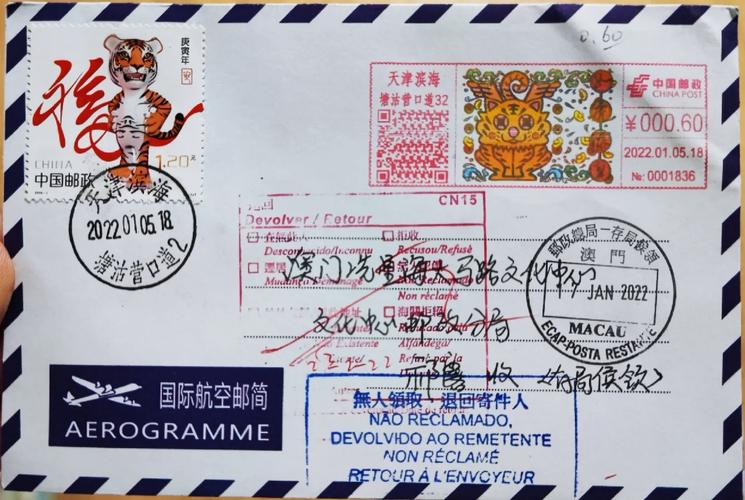 0.60
庚寅年
福
CHINA
中国邮政
1.20元
天津滨海
2022.01.05.18
塘沽营口道2
天津滨海
塘沽营口道32
中国邮政
CHINA POST
¥000.60
2022.01.05.18
№: 0001836
CN15
退回
Devolver / Retour
拒收
Desconhecido/Inconnu
Recusou/Refusé
遷居
Mudança/Déménagé
Non réclamé
海關拒絕
Alfândega/
Refusé par la
澳门
文化中心
文化中心邮政分局
收
郵政總局一存局候領
澳門
JAN 2022
MACAU
ECAP-POSTA RESTANTE
国际航空邮简
AEROGRAMME
無人領取，退回寄件人
NÃO RECLAMADO,
DEVOLVIDO AO REMETENTE
NON RÉCLAMÉ
RETOUR À L'ENVOYEUR